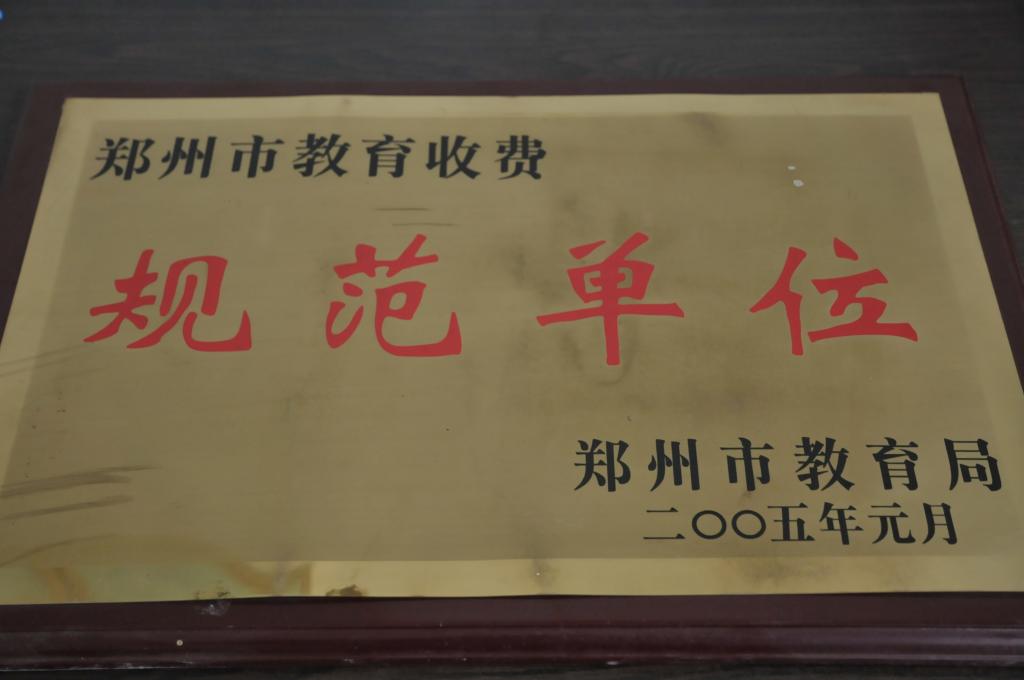 郑州市教育收费
规范单位
郑州市教育局
二〇〇五年元月